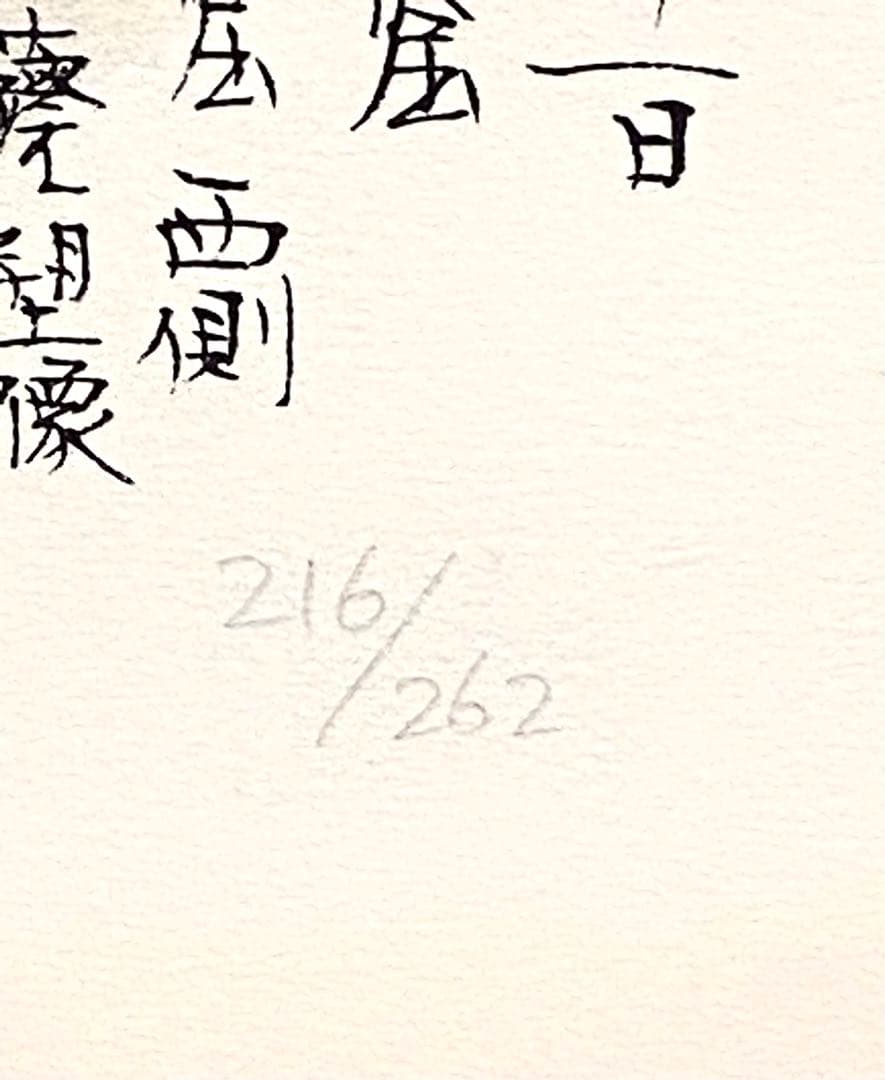 一日
窟
窟西側
塑像
216/262